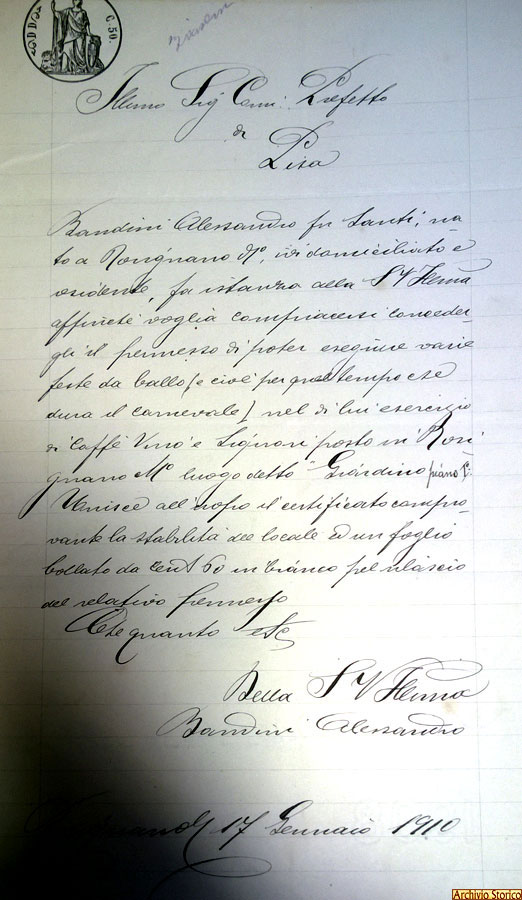 C. 50.
Illmo Sig Comm. Prefetto
di
Pisa
Bandini Alessandro fu Santi, na-
to a Rosignano Mº, ivi domiciliato e
residente, fa istanza alla S V Illma
affinché voglia compiacersi conceder-
gli il permesso di poter eseguire varie
feste da ballo (e cioè per quel tempo che
dura il carnevale) nel di lui esercizio
di Caffè Vino e Liquori posto in Rosi
gnano Mº luogo detto Giardino piano
Unisce all'uopo il certificato compro-
vante la stabilità del locale ed un foglio
bollato da Cent 60 in bianco pel rilascio
del relativo permesso
Che quanto
Della S V Illma
Bandini Alessandro
17 Gennaio 1910
Archivio Storico